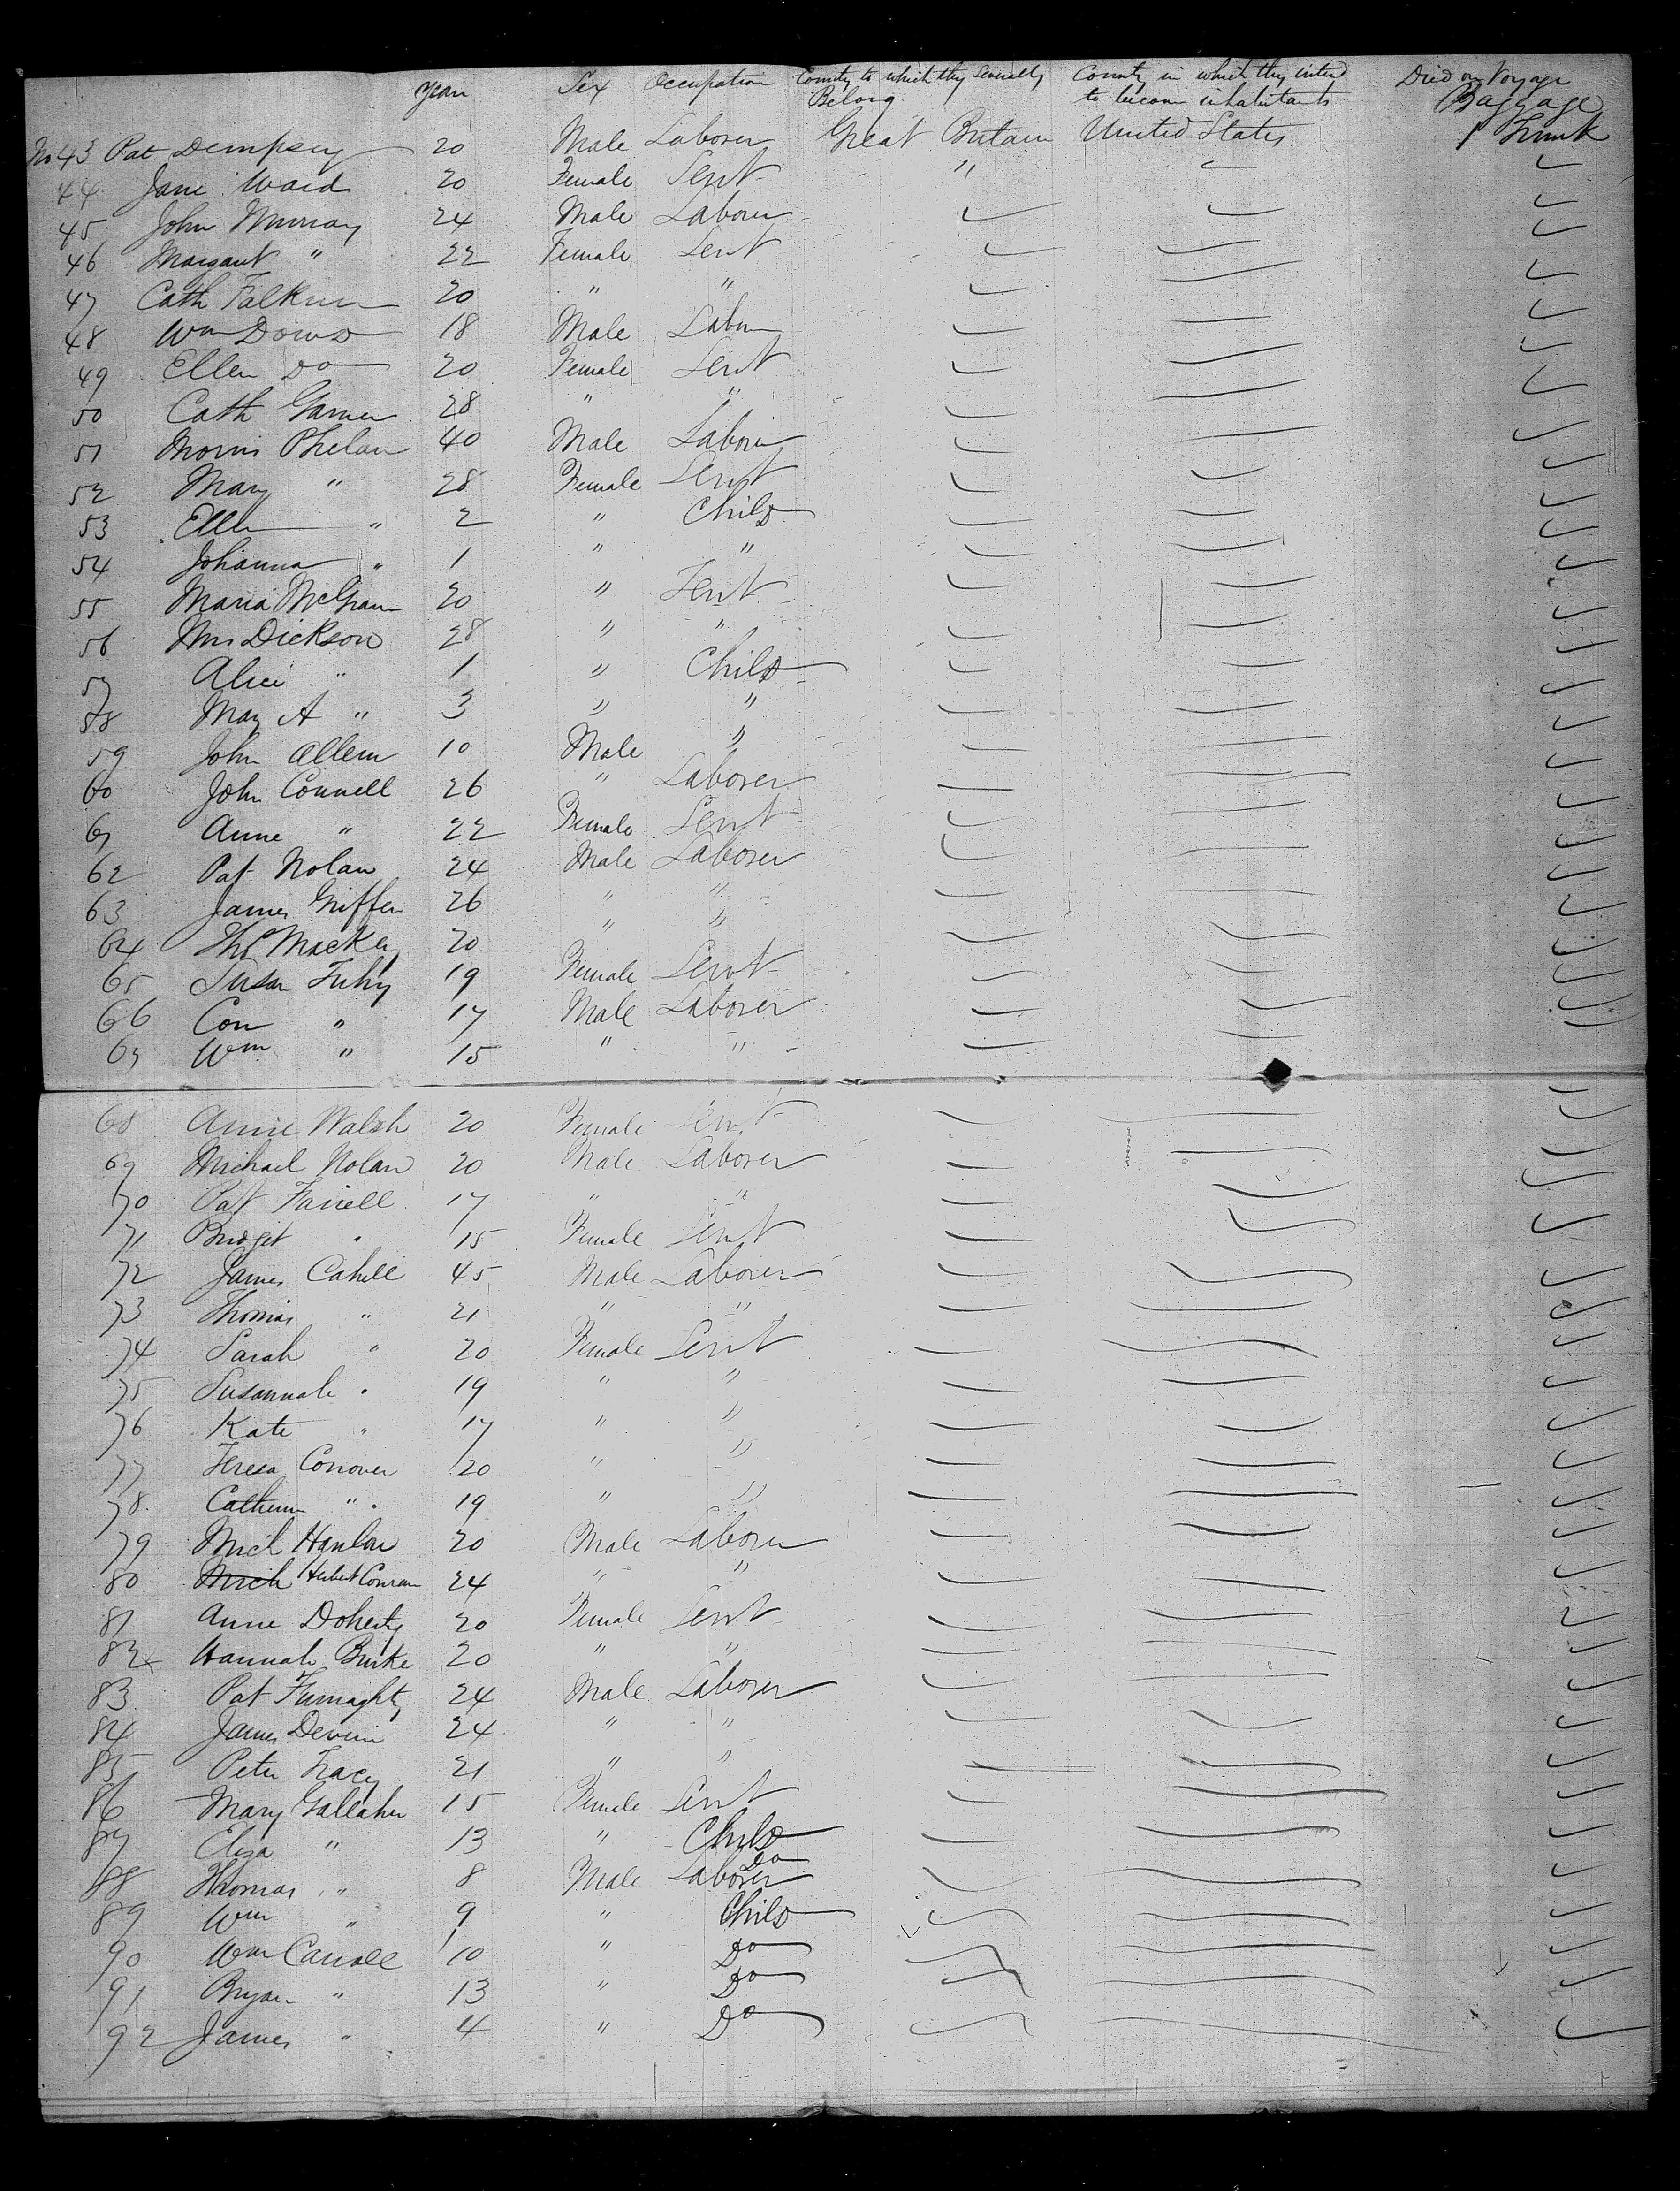 Years Sex Occupation County to which they severally Belong County in which they intend to become inhabitants Died on Voyage Baggage
No 43 Pat Dempsey 20 Male Laborer Great Britain United States 1 Trunk
44 Jane Ward 20 Female Servt "
45 John Murray 24 Male Laborer
46 Margaret " 22 Female Servt
47 Cath 20 " "
48 Wm Dowd 18 Male Labor
49 Ellen Do 20 Female Servt
50 Cath 28 " "
51 Morris Phelan 40 Male Laborer
52 Mary " 28 Female Servt
53 Ellen " 2 " Child
54 Johanna " 1 " "
55 Maria 20 " Servt
56 Mrs Dickson 28 " "
57 Alice " 1 " Child
58 Mary A " 3 " "
59 John Allen 10 Male "
60 John Connell 26 " Laborer
61 Anne " 22 Female Servt
62 Pat Nolan 24 Male Laborer
63 James Griffen 26 " "
64 Thos Mackey 20 " "
65 Susan 19 Female Servt
66 Con " 17 Male Laborer
67 Wm " 15 " "
68 Annie Walsh 20 Female Servt
69 Michael Nolan 20 Male Laborer
70 Pat Farrell 17 " "
71 Bridget " 15 Female Servt
72 James Cahill 45 Male Laborer
73 Thomas " 21 " "
74 Sarah " 20 Female Servt
75 Susannah " 19 " "
76 Kate " 17 " "
77 Teresa Conover 20 " "
78 Catherine " 19 " "
79 Mich Hanlon 20 Male Laborer
80 Mich Herbert 24 " "
81 Anne Doherty 20 Female Servt
82 Hannah Burke 20 " "
83 Pat 24 Male Laborer
84 James Devin 24 " "
85 Peter Tracey 21 " "
86 Mary Gallaher 15 Female Servt
87 Eliza " 13 " Child
88 Thomas " 8 Male Laborer Do
89 Wm " 9 " Child
90 Wm Carroll 10 " Do
91 Bryan " 13 " Do
92 James " 4 " Do